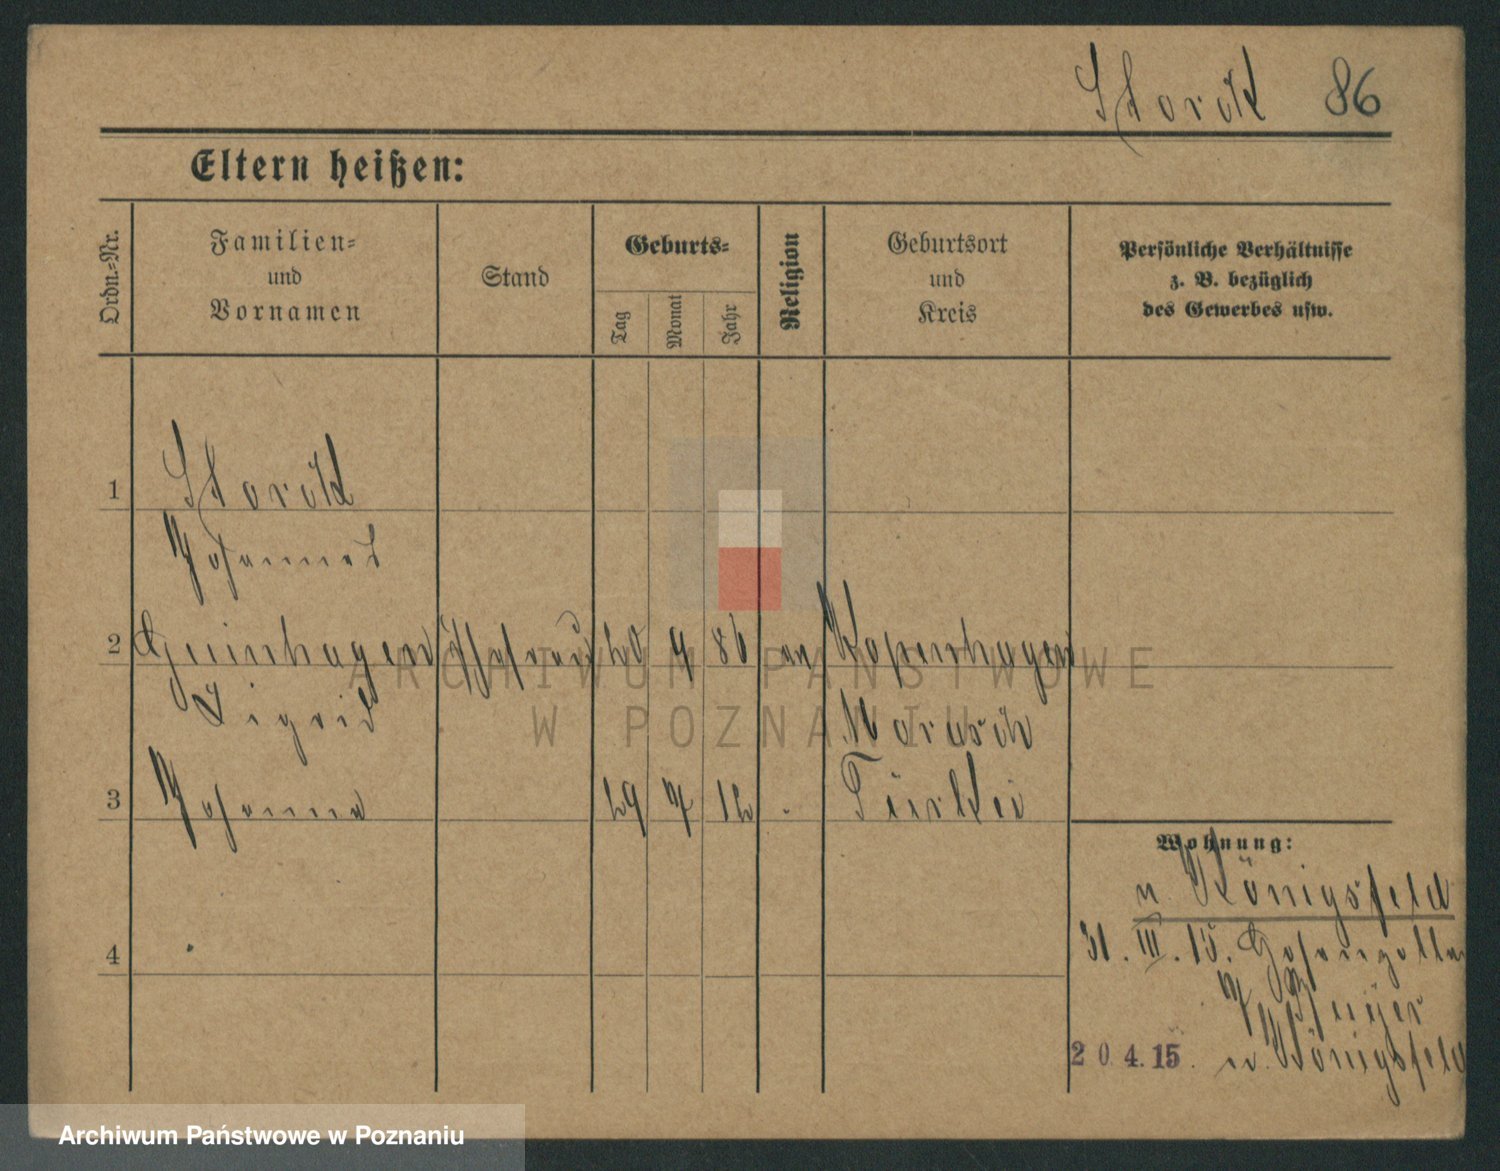 Storck 86
Eltern heißen:
Ordn.-Nr.
Familien-
und
Vornamen
Stand
Geburts-
Tag
Monat
Jahr
Religion
Geburtsort
und
Kreis
Persönliche Verhältnisse
z. B. bezüglich
des Gewerbes usw.
1 Storck
Johannes
2 Ehefrau 20 86 Kopenhagen
Sigrid
3 Johanna 29 7 12 Türkei
4
Wohnung:
n. Königsfeld
31. III. 15.
20.4.15. n. Königsfeld
ARCHIWUM PAŃSTWOWE
W POZNANIU
Archiwum Państwowe w Poznaniu